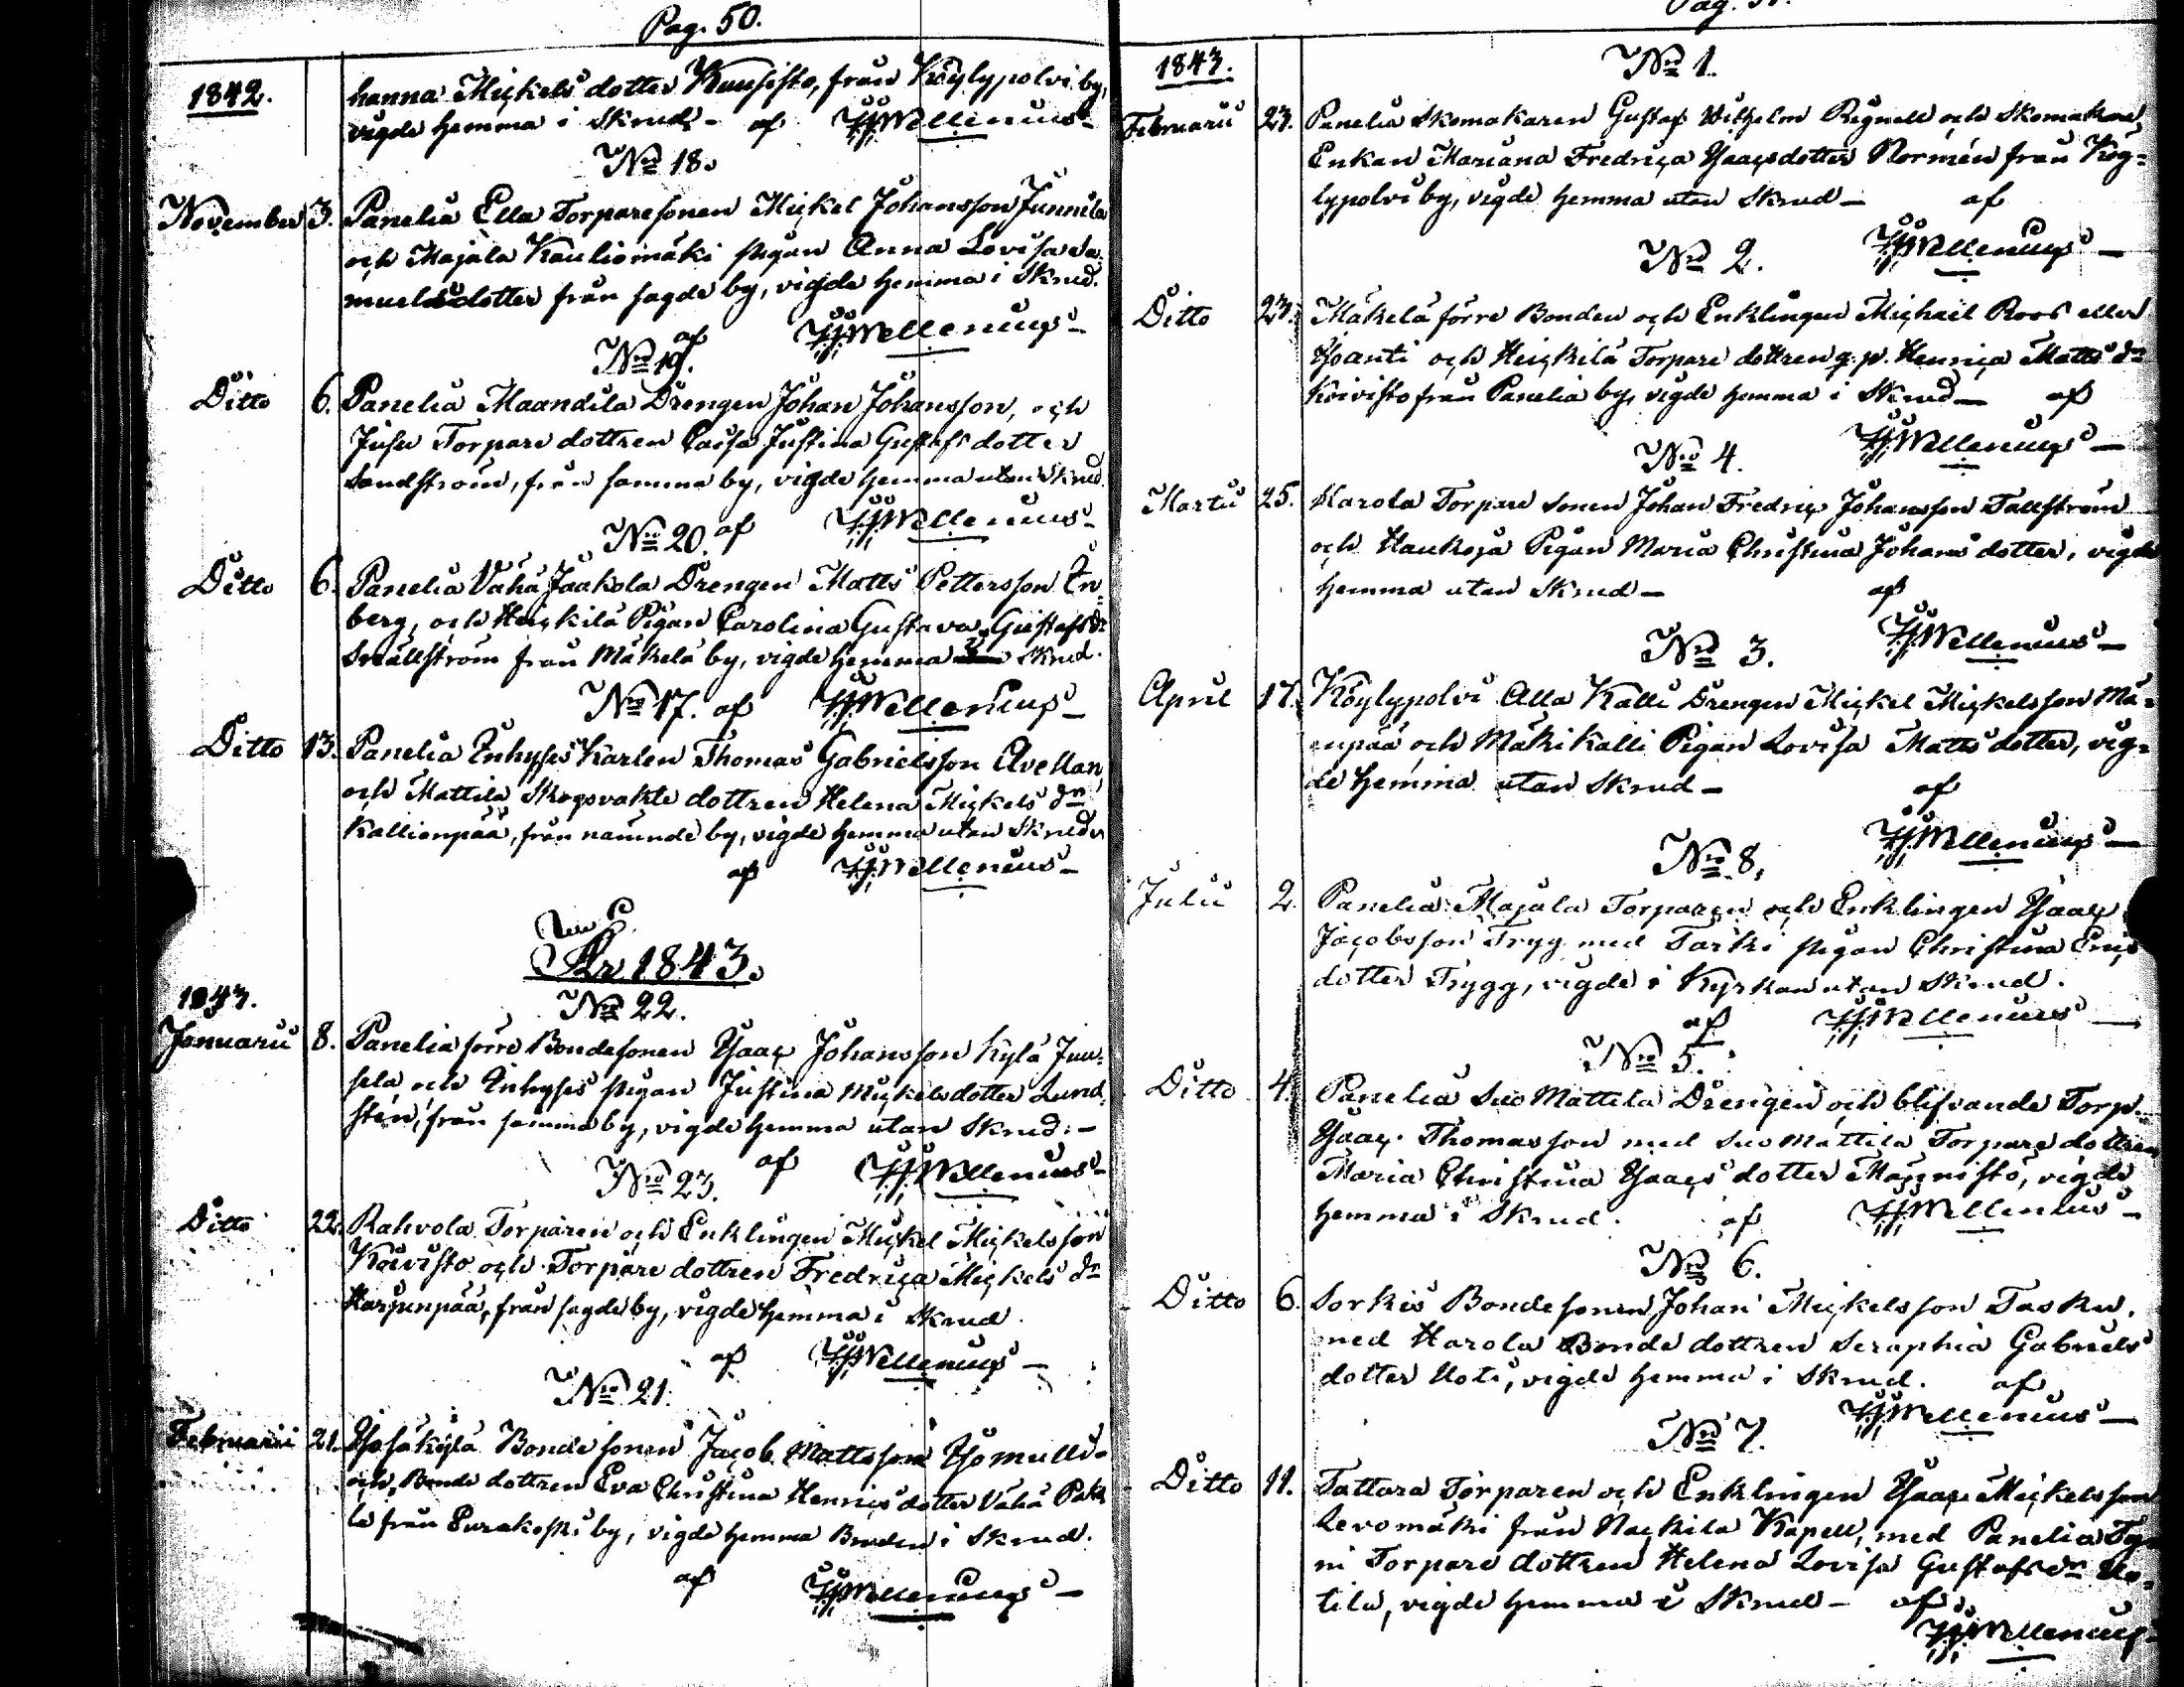 Pag. 50.
1842.
hanna Mickels dotter Kuusisto, från Köylypolvi by,
vigde hemma i Skrud - af HJWellenius
No 18.
November 3. Panelia Ella Torparesonen Mickel Johansson Junnila
och Majala Kauliomäki pigan Anna Lovisa Sa-
muelsdotter från sagde by, vigde hemma i Skrud.
af HJWellenius
No 19.
Ditto 6. Panelia Maandila Drengen Johan Johansson, och
Jusu Torpare dottren Caisa Justina Gustafs dotter
Sandström, från samma by, vigde hemma utan Skrud.
No 20. af HJWellenius
Ditto 6. Panelia Vähä Jaakola Drengen Matts Pettersson En-
berg, och Heickilä Pigan Carolina Gustava Gustafs dr
Smällström från Mäkelä by, vigde hemma Skrud.
No 17. af HJWellenius
Ditto 13. Panelia Inhyses Karlen Thomas Gabrielsson Avellan
och Mattila Skogsvakte dottren Helena Mickels dr
Kallionpää, från nämnde by, vigde hemma utan Skrud
af HJWellenius
År 1843.
1843.
No 22.
Januarii 8. Panelia förre Bondesonen Isaac Johansson Kylä Juu-
sela och Inhyses pigan Justina Mickelsdotter Lund-
stén, från samma by, vigde hemma utan Skrud. -
No 23. af HJWellenius
Ditto 22. Rahvola Torparen och Enklingen Mickel Mickelsson
Koivisto och Torpare dottren Fredrica Mickels dr
Harjunpää, från sagde by, vigde hemma i Skrud.
af HJWellenius
No 21.
Februarii 21. Isosäkylä Bonde sonen Jacob Mattsson Isomulli
och Bonde dottren Eva Christina Henrics dotter Vähä
från Eurakoski by, vigde hemma Bruden i Skrud.
af HJWellenius
1843.
No 1.
Februarii 23. Panelia Skomakaren Gustaf Wilhelm Regnell och Skomakare
Enkan Mariana Fredrica Isaacsdotter Normén från Köy-
lypolvi by, vigde hemma utan Skrud - af
No 2. HJWellenius
Ditto 23. Mäkelä förre Bonden och Enklingen Michaël Roos eller
och Heickilä Torpare dottren q.p. Henrica Matts dr
Koivisto från Panelia by, vigde hemma i Skrud - af
No 4. HJWellenius
Martii 25. Harola Torpare sonen Johan Fredric Johansson Tallström
och Haukoja Pigan Maria Christina Johans dotter, vigde
hemma utan Skrud - af
No 3. HJWellenius
April 17. Köylypolvi Alla Kalli Drengen Mickel Mickelsson Mä-
enpää, och Mäki Kalli Pigan Lovisa Matts dotter, vig-
de hemma utan Skrud - af
No 8. HJWellenius
Julii 2. Panelia Majala Torparen och Enklingen Isaac
Jacobsson Tryg med Tarki pigan Christina Erics
dotter Trygg, vigde i Kyrkan utan Skrud.
af HJWellenius
No 5.
Ditto 4. Panelia Suo Mattila Drengen och blifvande Torp.
Isaac Thomasson med Suo Mattila Torpare dottren
Maria Christina Isaacs dotter Männistö, vigde
hemma i Skrud. af HJWellenius
No 6.
Ditto 6. Sorkis Bonde sonen Johan Mickelsson Tasku,
med Harola Bonde dottren Seraphia Gabriels
dotter Uoti, vigde hemma i Skrud. af
No 7. HJWellenius
Ditto 11. Tattara Torparen och Enklingen Isaac Mickelsson
Levomäki från Nackila Kapell, med Panelia Ty-
ni Torpare dottren Helena Lovisa Gustafs dr Uo-
tila, vigde hemma i Skrud - af
HJWellenius